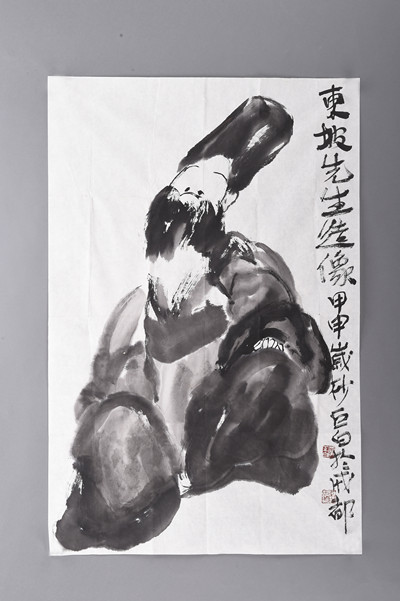 東坡先生造像甲申歲杪巨白於成都